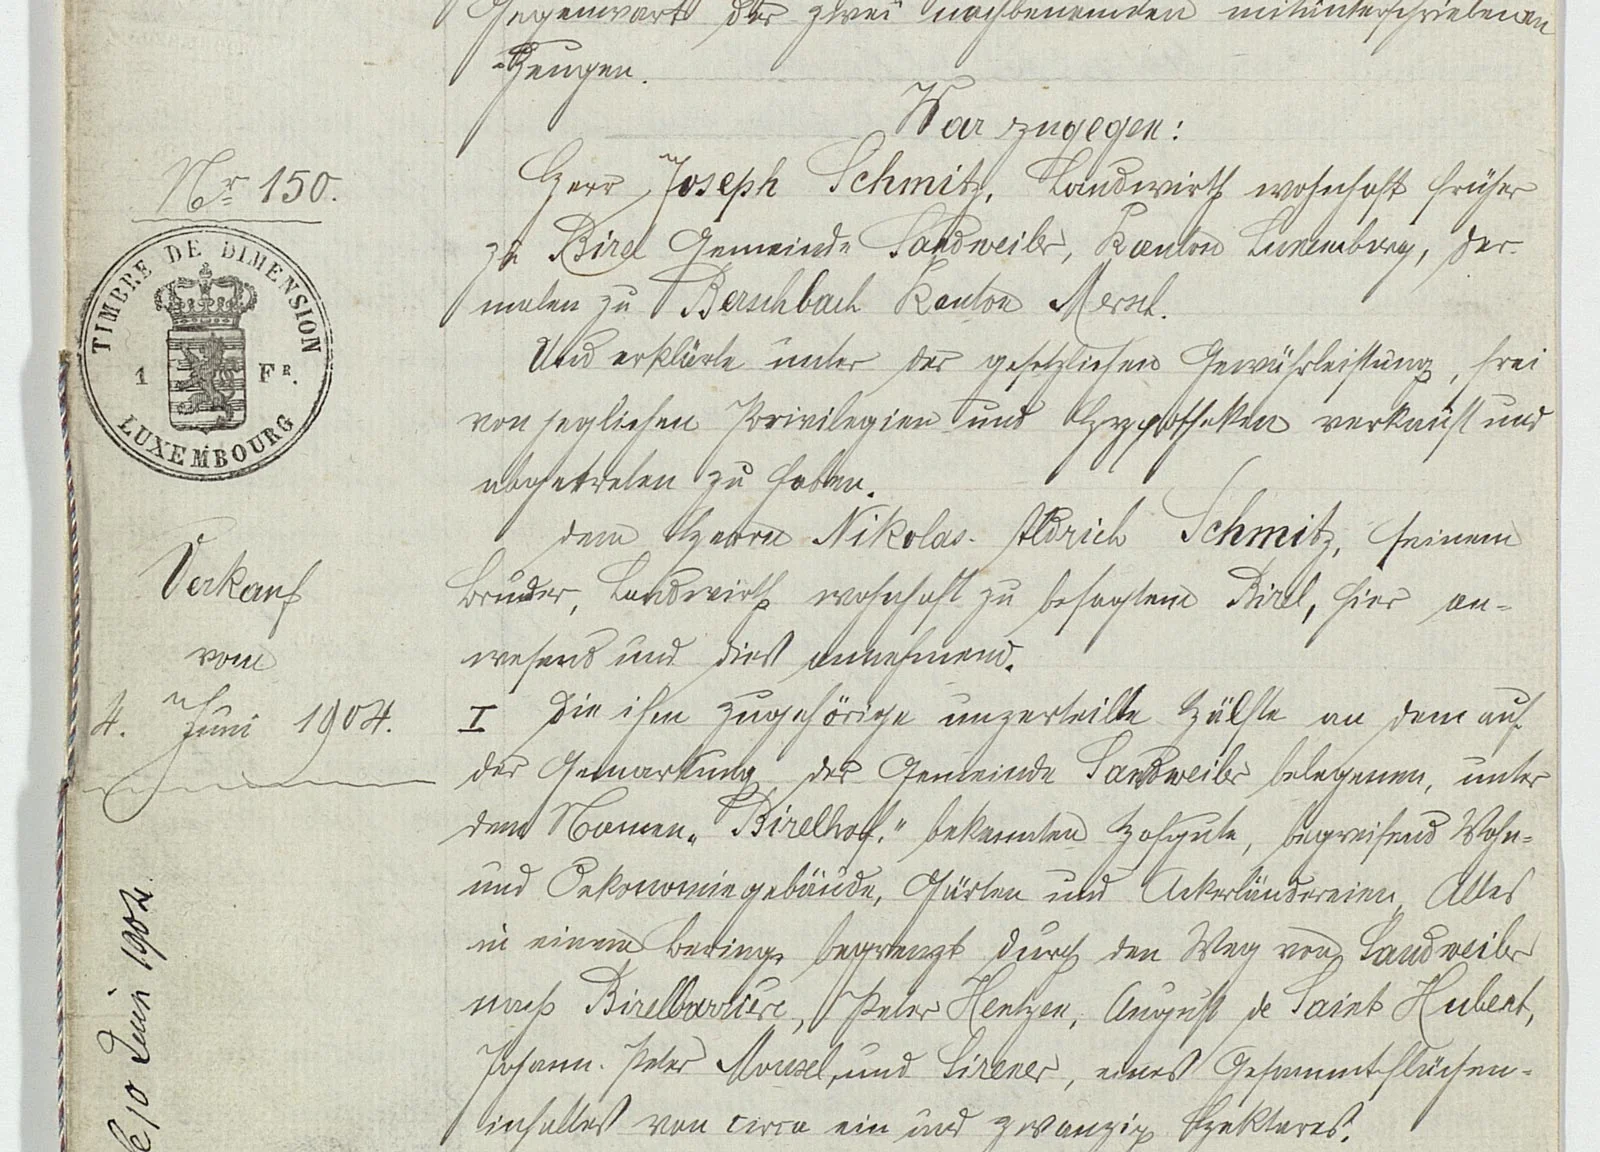 Gegenwart der zwei nachbenannten mitunterschriebenen
Zeugen.
War zugegen:
Herr Joseph Schmitz, Landwirth wohnhaft früher
zu Birel Gemeinde Sandweiler, Kanton Luxemburg, der-
malen zu Berschbach Kanton Mersch.
Und erklärte unter der gesetzlichen Gewährleistung, frei
von jeglichen Privilegien und Hypotheken verkauft und
abgetreten zu haben.
dem Herrn Nikolas-Aldrich Schmitz, seinem
Bruder, Landwirth wohnhaft zu besagtem Birel, hier an-
wesend und dies annehmend.
I Die ihm zugehörige unzerteilte Hälfte an dem auf
der Gemarkung der Gemeinde Sandweiler belegenen, unter
dem Namen „Birelhof." bekannten Hofgute, begreifend Wohn-
und Oekonomiegebäude, Gärten und Ackerländereien, Alles
in einem Bering, begrenzt durch den Weg von Sandweiler
nach Birelbarriere, Peter Hentzen, August de Saint Hubert,
Johann-Peter Mousel, und Sirener, eines Gesammtflächen-
inhaltes von circa ein und zwanzig Hektares.
Nr 150.
TIMBRE DE DIMENSION
1 FR.
LUXEMBOURG
Verkauf
vom
4. Juni 1904.
le 10 Juin 1904.